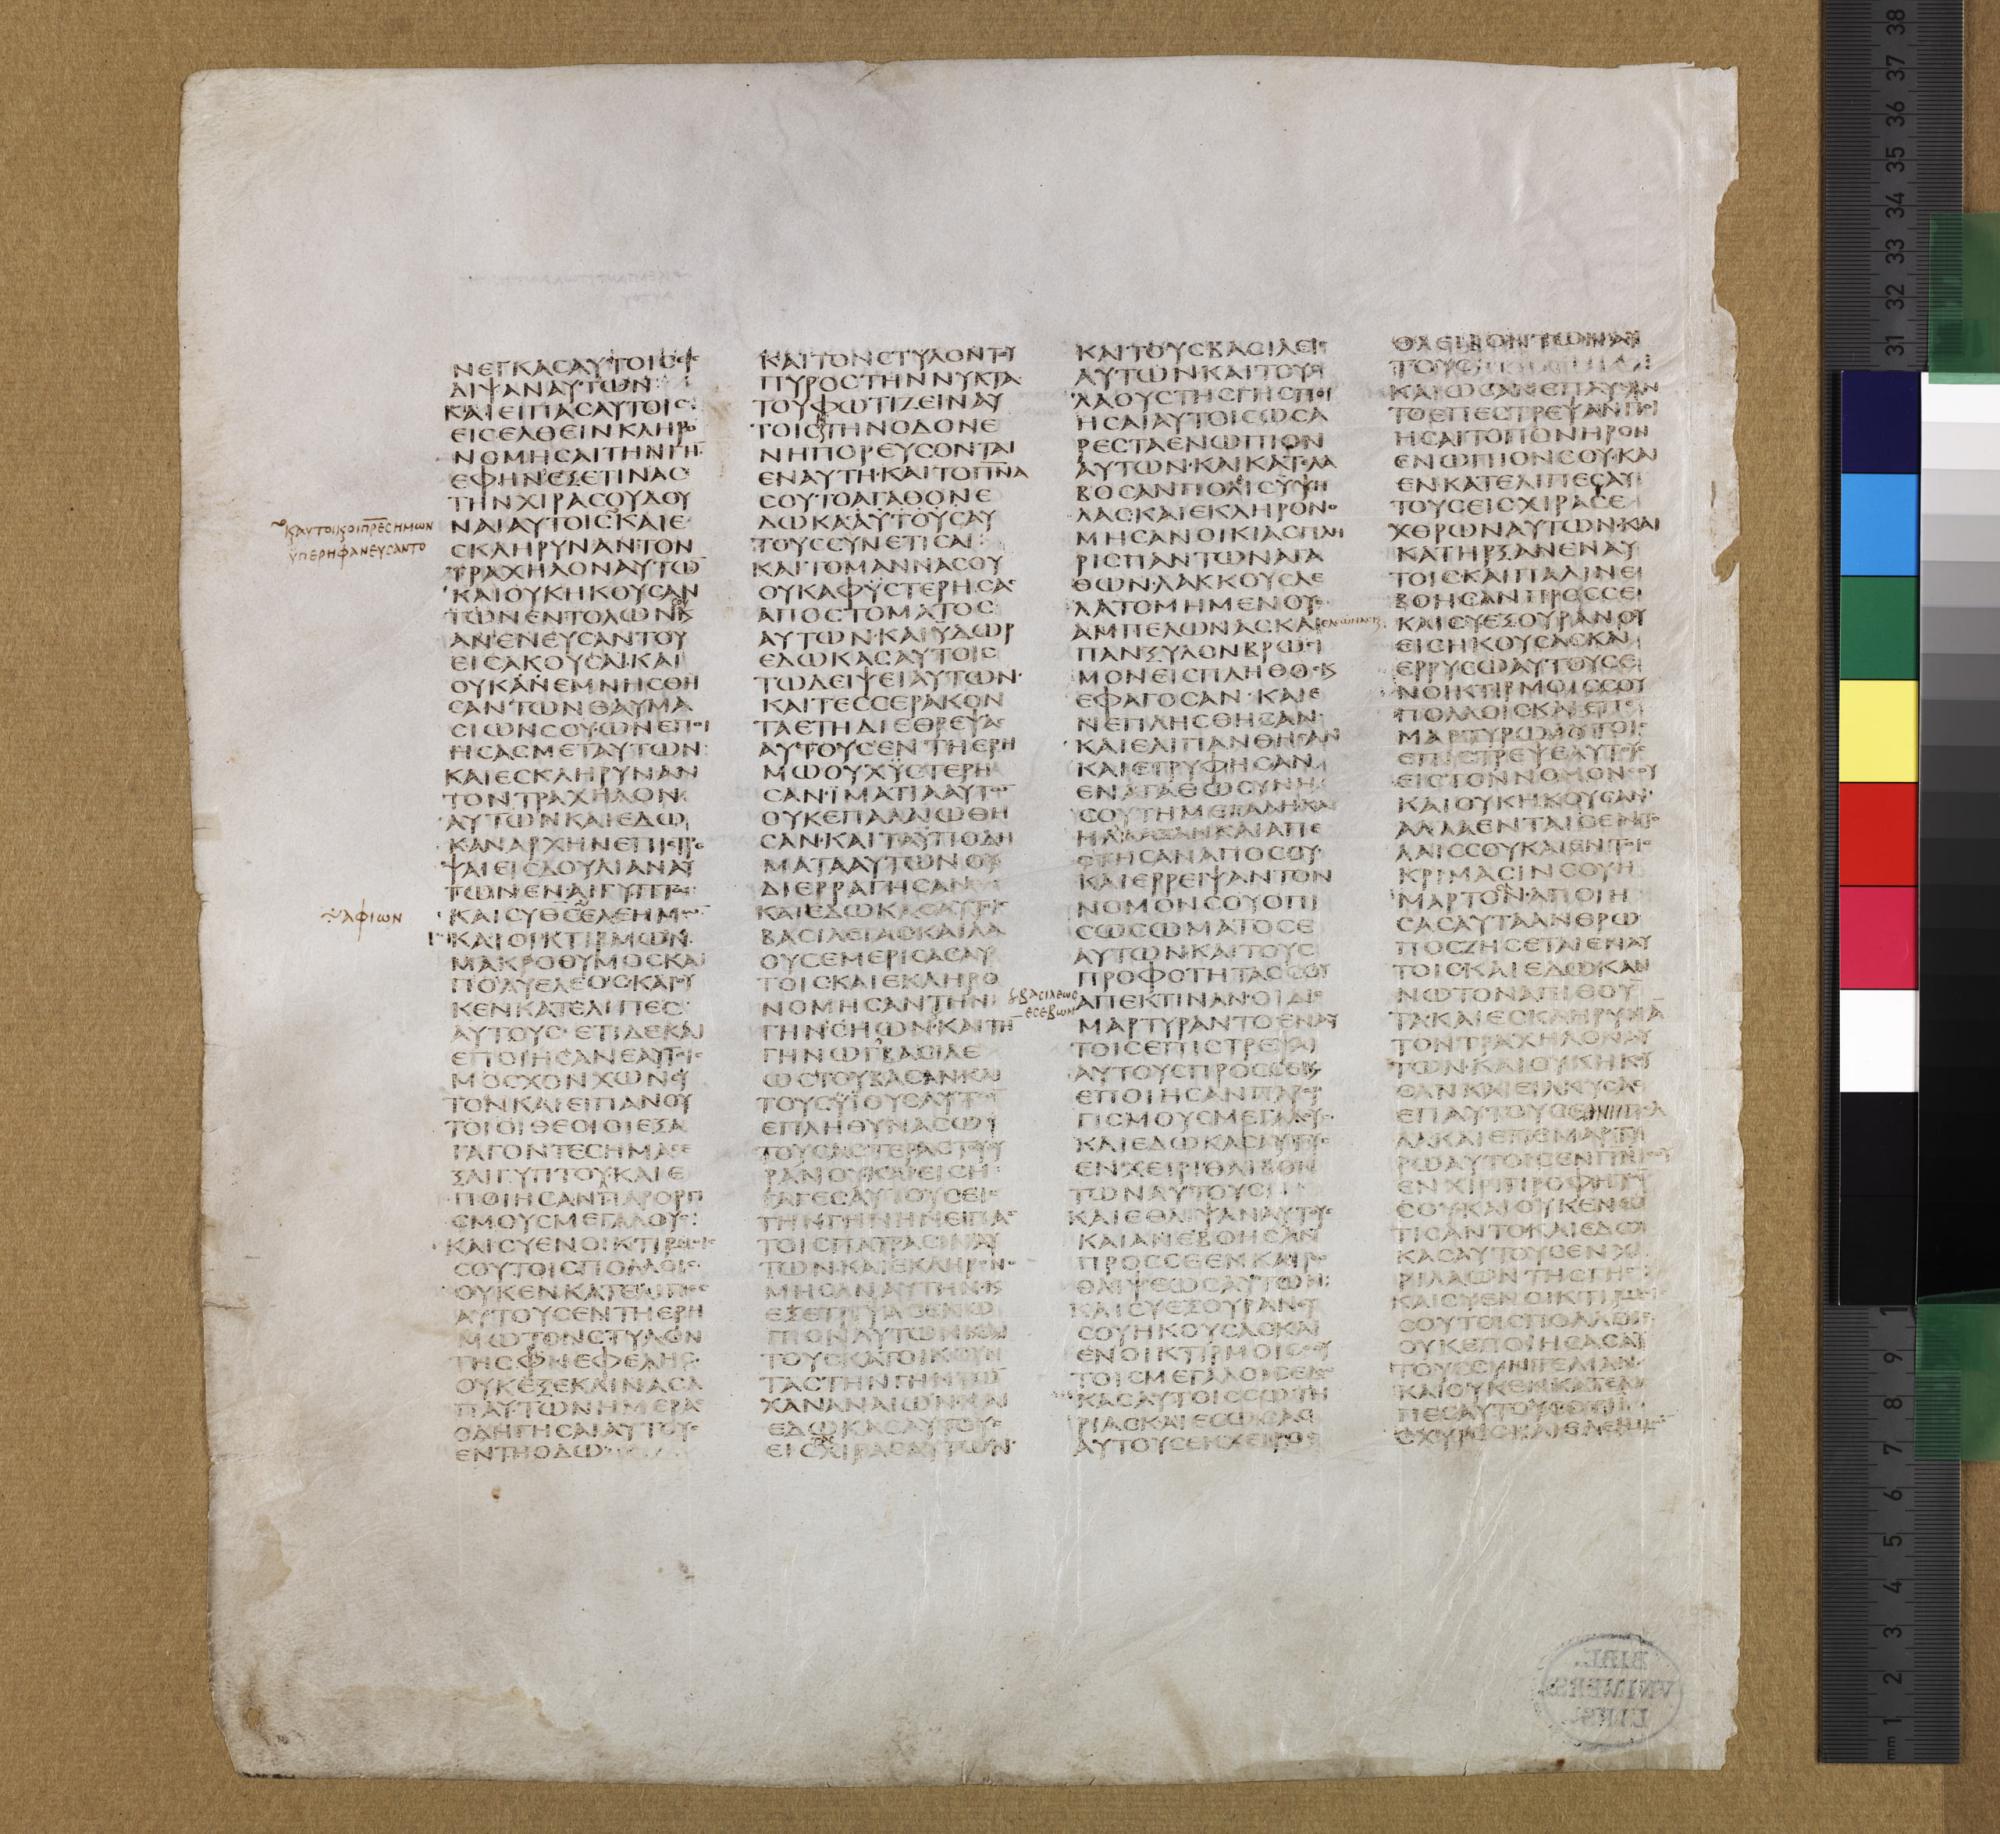 ΝΕΓΚΑCΑΥΤΟΙC
ΔΙΨΑΝΑΥΤΩΝ
ΚΑΙΕΙΠΑCΑΥΤΟΙC
ΕΙCΕΛΘΕΙΝΚΛΗΡΟ
ΝΟΜΗCΑΙΤΗΝΓΗ
ΕΦΗΝΕΞΕΤΙΝΑC
ΤΗΝΧΙΡΑCΟΥΔΟΥ
ΝΑΙΑΥΤΟΙCΚΑΙΕ
CΚΛΗΡΥΝΑΝΤΟΝ
ΤΡΑΧΗΛΟΝΑΥΤΩ
ΚΑΙΟΥΚΗΚΟΥCΑΝ
ΤΩΝΕΝΤΟΛΩΝ
ΑΝΕΝΕΥCΑΝΤΟΥ
ΕΙCΑΚΟΥCΑΙΚΑΙ
ΟΥΚΑΝΕΜΝΗCΘΗ
CΑΝΤΩΝΘΑΥΜΑ
CΙΩΝCΟΥΩΝΕΠΟΙ
ΗCΑCΜΕΤΑΥΤΩΝ
ΚΑΙΕCΚΛΗΡΥΝΑΝ
ΤΟΝΤΡΑΧΗΛΟΝ
ΑΥΤΩΝΚΑΙΕΔΩ
ΚΑΝΑΡΧΗΝΕΠΙCΤΡΕ
ΨΑΙΕΙCΔΟΥΛΙΑΝΑΥ
ΤΩΝΕΝΑΙΓΥΠΤΩ
ΚΑΙCΥΘCΕΛΕΗΜΩ
ΚΑΙΟΙΚΤΙΡΜΩΝ
ΜΑΚΡΟΘΥΜΟCΚΑΙ
ΠΟΛΥΕΛΕΟCΚΑΙΟΥ
ΚΕΝΚΑΤΕΛΙΠΕC
ΑΥΤΟΥCΕΤΙΔΕΚΑΙ
ΕΠΟΙΗCΑΝΕΑΥΤΟΙC
ΜΟCΧΟΝΧΩΝΕΥ
ΤΟΝΚΑΙΕΙΠΑΝΟΥ
ΤΟΙΟΙΘΕΟΙΟΙΕΞΑ
ΓΑΓΟΝΤΕCΗΜΑCΕ
ΞΑΙΓΥΠΤΟΥΚΑΙΕ
ΠΟΙΗCΑΝΠΑΡΟΡΓΙ
CΜΟΥCΜΕΓΑΛΟΥC
ΚΑΙCΥΕΝΟΙΚΤΙΡΜΟΙC
CΟΥΤΟΙCΠΟΛΛΟΙC
ΟΥΚΕΝΚΑΤΕΛΙΠΕC
ΑΥΤΟΥCΕΝΤΗΕΡΗ
ΜΩΤΟΝCΤΥΛΟΝ
ΤΗCΝΕΦΕΛΗC
ΟΥΚΕΞΕΚΛΙΝΑCΑ
ΠΑΥΤΩΝΗΜΕΡΑC
ΟΔΗΓΗCΑΙΑΥΤΟΥC
ΕΝΤΗΟΔΩ
ΚΑΥΤΟΙΚΟΙΠΡΕCΗΜΩΝ
ΥΠΕΡΗΦΑΝΕΥCΑΝΤΟ
ΑΦΙΩΝ
ΚΑΙΤΟΝCΤΥΛΟΝΤΟΥ
ΠΥΡΟCΤΗΝΝΥΚΤΑ
ΤΟΥΦΩΤΙΖΕΙΝΑΥ
ΤΟΙCΤΗΝΟΔΟΝΕ
ΝΗΠΟΡΕΥCΟΝΤΑΙ
ΕΝΑΥΤΗΚΑΙΤΟΠΝΑ
CΟΥΤΟΑΓΑΘΟΝΕ
ΔΩΚΑΑΥΤΟΥCΑΥ
ΤΟΥCCΥΝΕΤΙCΑΙ
ΚΑΙΤΟΜΑΝΝΑCΟΥ
ΟΥΚΑΦΥCΤΕΡΗCΑC
ΑΠΟCΤΟΜΑΤΟC
ΑΥΤΩΝΚΑΙΥΔΩΡ
ΕΔΩΚΑCΑΥΤΟΙC
ΤΩΔΕΙΨΕΙΑΥΤΩΝ
ΚΑΙΤΕCCΕΡΑΚΟΝ
ΤΑΕΤΗΔΙΕΘΡΕΨΑC
ΑΥΤΟΥCΕΝΤΗΕΡΗ
ΜΩΟΥΧΥCΤΕΡΗ
CΑΝΙΜΑΤΙΑΑΥΤΩ
ΟΥΚΕΠΑΛΑΙΩΘΗ
CΑΝΚΑΙΤΑΥΠΟΔΗ
ΜΑΤΑΑΥΤΩΝΟΥ
ΔΙΕΡΡΑΓΗCΑΝ
ΚΑΙΕΔΩΚΑCΑΥΤΟΙC
ΒΑCΙΛΕΙΑCΚΑΙΛΑ
ΟΥCΕΜΕΡΙCΑCΑΥ
ΤΟΙCΚΑΙΕΚΛΗΡΟ
ΝΟΜΗCΑΝΤΗΝ
ΓΗΝCΗΩΝΚΑΙΤΗ
ΓΗΝΩΓΒΑCΙΛΕ
ΩCΤΟΥΒΑCΑΝΚΑΙ
ΤΟΥCΥΙΟΥCΑΥΤΩ
ΕΠΛΗΘΥΝΑCΩC
ΤΟΥCΑCΤΕΡΑCΤΟΥΟΥ
ΡΑΝΟΥΚΑΙΕΙCΗ
ΓΑΓΕCΑΥΤΟΥCΕΙC
ΤΗΝΓΗΝΗΝΕΙΠΑC
ΤΟΙCΠΑΤΡΑCΙΝΑΥ
ΤΩΝΚΑΙΕΚΛΗΡΟΝΟ
ΜΗCΑΝΑΥΤΗΝΚ
ΕΞΕΤΡΙΨΑCΕΝΩ
ΠΙΟΝΑΥΤΩΝ
ΤΟΥCΚΑΤΟΙΚΟΥΝ
ΤΑCΤΗΝΓΗΝΤΩ
ΧΑΝΑΝΑΙΩΝΚΑΙ
ΕΔΩΚΑCΑΥΤΟΥC
ΕΙCΧΙΡΑCΑΥΤΩΝ
ΒΑCΙΛΕΩC
ΕCΕΒΩΝ
ΚΑΙΤΟΥCΒΑCΙΛΕΙC
ΑΥΤΩΝΚΑΙΤΟΥC
ΛΑΟΥCΤΗCΓΗCΠΟΙ
ΗCΑΙΑΥΤΟΙCΩCΑ
ΡΕCΤΑΕΝΩΠΙΟΝ
ΑΥΤΩΝΚΑΙΚΑΤΕΛΑ
ΒΟCΑΝΠΟΛΙCΥΨΗ
ΛΑCΚΑΙΕΚΛΗΡΟΝΟ
ΜΗCΑΝΟΙΚΙΑCΠΛΗ
ΡΙCΠΑΝΤΩΝΑΓΑ
ΘΩΝΛΑΚΚΟΥCΛΕ
ΛΑΤΟΜΗΜΕΝΟΥC
ΑΜΠΕΛΩΝΑCΚΑΙ
ΠΑΝΞΥΛΟΝΒΡΩCΙ
ΜΟΝΕΙCΠΛΗΘΟCΚ
ΕΦΑΓΟCΑΝΚΑΙΕ
ΝΕΠΛΗCΘΗCΑΝ
ΚΑΙΕΛΙΠΑΝΘΗCΑΝ
ΚΑΙΕΤΡΥΦΗCΑΝ
ΕΝΑΓΑΘΩCΥΝΗ
CΟΥΤΗΜΕΓΑΛΗΚΑΙ
ΗΛΛΑΞΑΝΚΑΙΑΠΕ
CΤΗCΑΝΑΠΟCΟΥ
ΚΑΙΕΡΡΕΙΨΑΝΤΟΝ
ΝΟΜΟΝCΟΥΟΠΙ
CΩCΩΜΑΤΟCΕ
ΑΥΤΩΝΚΑΙΤΟΥC
ΠΡΟΦΟΤΗΤΑCCΟΥ
ΑΠΕΚΤΙΝΑΝΟΙΔΙΕ
ΜΑΡΤΥΡΑΝΤΟΕΝΑΥ
ΤΟΙCΕΠΙCΤΡΕΨΑΙ
ΑΥΤΟΥCΠΡΟCCΕΚ
ΕΠΟΙΗCΑΝΠΑΡΟΡ
ΓΙCΜΟΥCΜΕΓΑΛΟΥC
ΚΑΙΕΔΩΚΑCΑΥΤΟΥC
ΕΝΧΕΙΡΙΘΛΙΒΟΝ
ΤΩΝΑΥΤΟΥC
ΚΑΙΕΘΛΙΨΑΝΑΥΤΟΥC
ΚΑΙΑΝΕΒΟΗCΑΝ
ΠΡΟCCΕΕΝΚΑΙΡΩ
ΘΛΙΨΕΩCΑΥΤΩΝ
ΚΑΙCΥΕΞΟΥΡΑΝΟΥ
CΟΥΗΚΟΥCΑCΚΑΙ
ΕΝΟΙΚΤΙΡΜΟΙCCΟΥ
ΤΟΙCΜΕΓΑΛΟΙCΕΔΩ
ΚΑCΑΥΤΟΙCCΩΤΗ
ΡΙΑCΚΑΙΕCΩCΑC
ΑΥΤΟΥCΕΚΧΕΙΡΟC
ΘΛΕΙΒΟΝΤΩΝΑΥ
ΤΟΥC
ΚΑΙΩCΑΝΕΠΑΥCΑΝ
ΤΟΕΠΕCΤΡΕΨΑΝΠΟΙ
ΗCΑΙΤΟΠΟΝΗΡΟΝ
ΕΝΩΠΙΟΝCΟΥΚΑΙ
ΕΝΚΑΤΕΛΙΠΕCΑΥ
ΤΟΥCΕΙCΧΙΡΑCΕ
ΧΘΡΩΝΑΥΤΩΝΚΑΙ
ΚΑΤΗΡΞΑΝΕΝΑΥ
ΤΟΙCΚΑΙΠΑΛΙΝΕ
ΒΟΗCΑΝΠΡΟCCΕ
ΚΑΙCΥΕΞΟΥΡΑΝΟΥ
ΕΙCΗΚΟΥCΑCΚΑΙ
ΕΡΡΥCΩΑΥΤΟΥCΕ
ΝΟΙΚΤΙΡΜΟΙCCΟΥ
ΠΟΛΛΟΙCΚΑΙΕΠΕ
ΜΑΡΤΥΡΩΑΥΤΟΙC
ΕΠΙCΤΡΕΨΕΑΥΤΟΥC
ΕΙCΤΟΝΝΟΜΟΝCΟΥ
ΚΑΙΟΥΚΗΚΟΥCΑΝ
ΑΛΛΑΕΝΤΑΙCΕΝΤΟ
ΛΑΙCCΟΥΚΑΙΕΝΤΟΙC
ΚΡΙΜΑCΙΝCΟΥΗ
ΜΑΡΤΟΝΑΠΟΙΗ
CΑCΑΥΤΑΑΝΘΡΩ
ΠΟCΖΗCΕΤΑΙΕΝΑΥ
ΤΟΙCΚΑΙΕΔΩΚΑΝ
ΝΩΤΟΝΑΠΙΘΟΥ
ΤΑΚΑΙΕCΚΛΗΡΥΝΑ
ΤΟΝΤΡΑΧΗΛΟΝΑΥ
ΤΩΝΚΑΙΟΥΚΗΚΟΥ
CΑΝΚΑΙΕΙΛΚΥCΑC
ΕΠΑΥΤΟΥC
ΛΑΚΑΙΕΠΕΜΑΡΤΥ
ΡΩΑΥΤΟΙCΕΝΠΝΙCΟΥ
ΕΝΧΙΡΙΠΡΟΦΗΤΩ
CΟΥΚΑΙΟΥΚΕΝΩ
ΤΙCΑΝΤΟΚΑΙΕΔΩ
ΚΑCΑΥΤΟΥCΕΝΧΙ
ΡΙΛΑΩΝΤΗCΓΗC
ΚΑΙCΥΕΝΟΙΚΤΙΡΜΟΙC
CΟΥΤΟΙCΠΟΛΛΟΙC
ΟΥΚΕΠΟΙΗCΑCΑΥ
ΤΟΥCCΥΝΤΕΛΙΑΝ
ΚΑΙΟΥΚΕΝΚΑΤΕΛΙ
ΠΕCΑΥΤΟΥC
ΙCΧΥΡΟCΚΑΙΕΛΕΗΜΩ
BIBL.
VNIVERS.
LIPS.